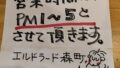 営業時間は
PM1～5と
させて頂きます。
エルドラード森町